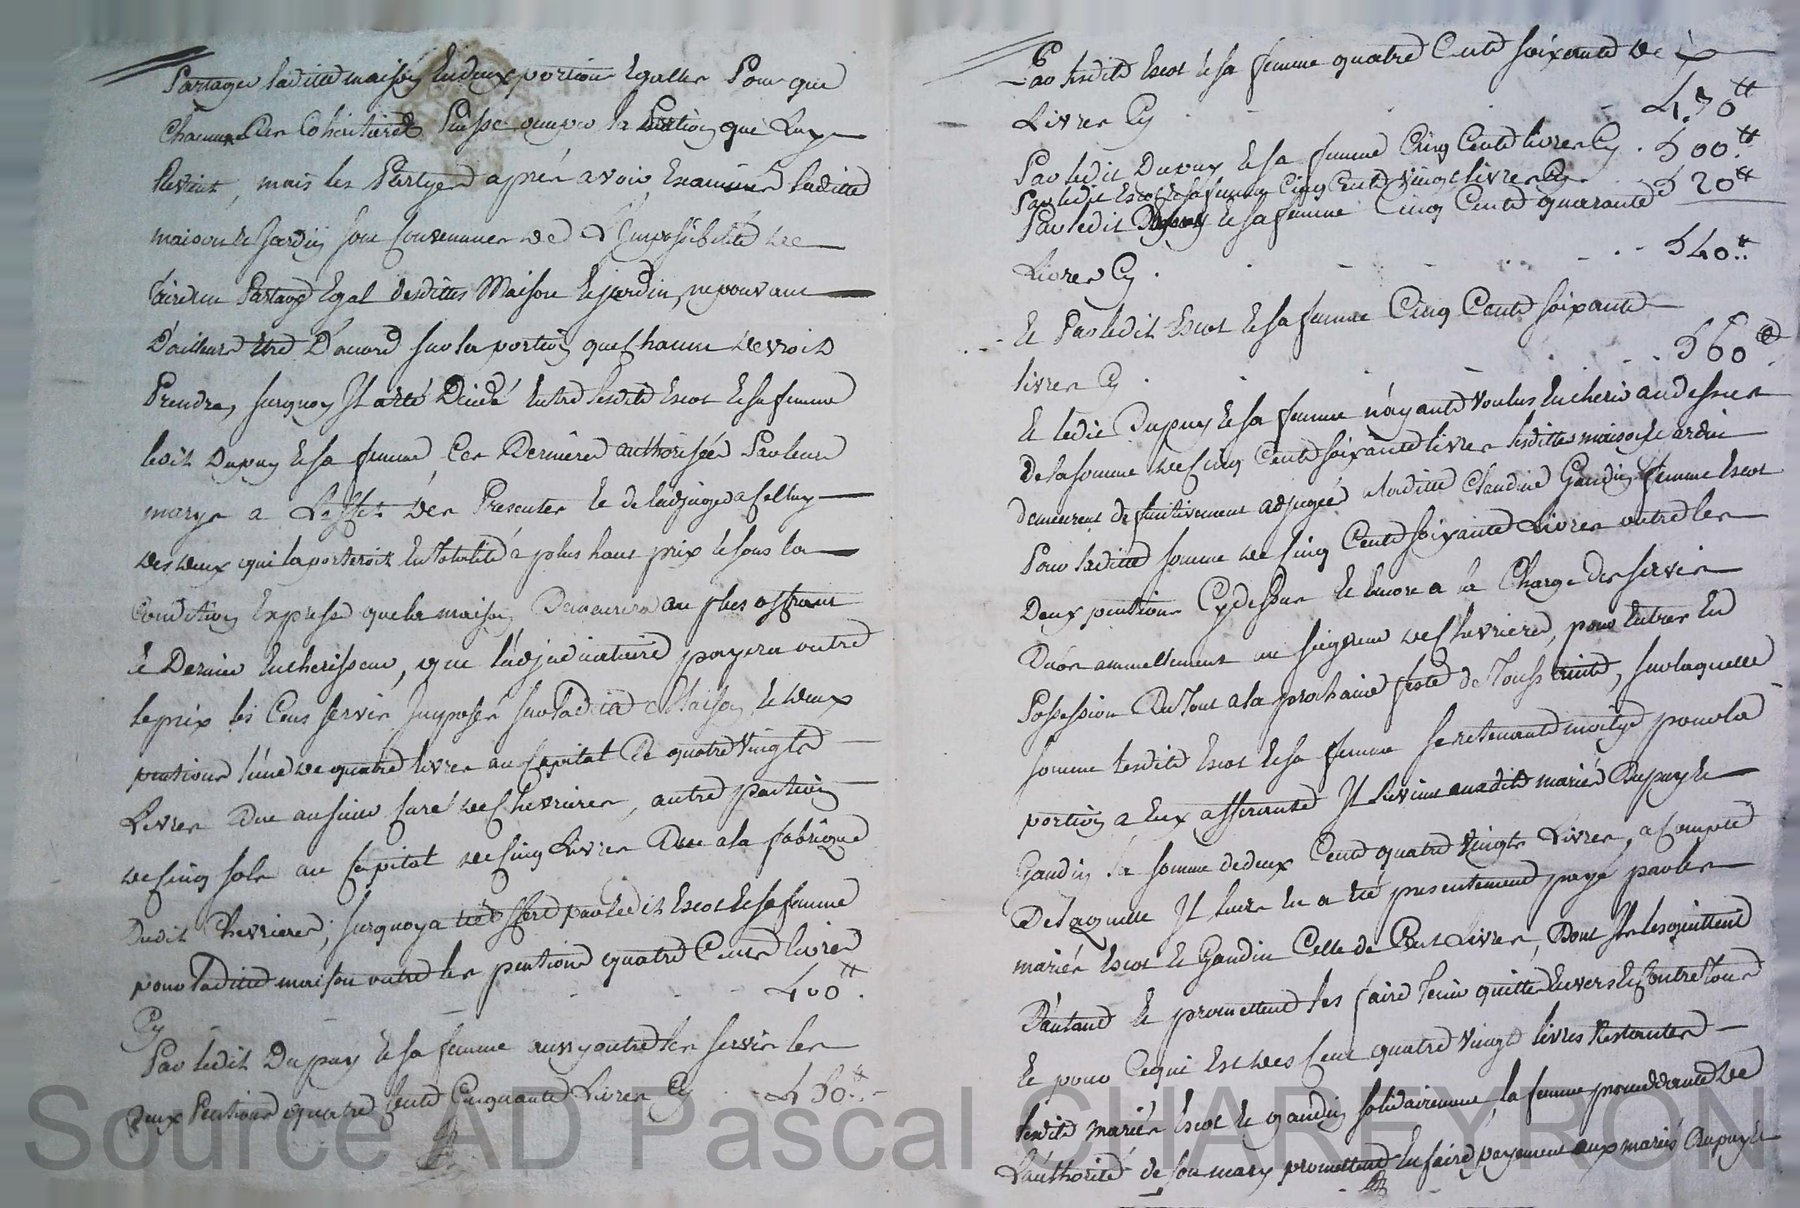 Partager laditte maison en deux portions Egalles Pour que
Chacune des Cohéritieres Puisse ocuper la Portion que luy
Revient, mais les Partyes après avoir Examinné laditte
maison et Jardin sont Convennues de L'Impossibilité de
faire un Partage Egal desdittes Maison et jardin, ne pouvant
D'ailleurs être D'acord sur la portion que Chacun devroit
Prendre, surquoy Il a été Décidé entre lesdits Escot et sa femme
ledit Dupuy et sa femme, Ces Dernieres authorisées Par leurs
marys a L'effet des Presentes et de l'adjuger a Celluy
des deux qui la porteroit en totalité a plus haut prix et sous la
Condition Expresse que la maison Demeurera au plus offrant
et Dernier Encherisseur, que l'adjudicataire payera outre
le prix les Cens servis Imposés sur laditte Maison, et deux
pentions l'une de quatre livres au Capital De quatre Vingts
Livres Due au sieur Curé de Chevrieres, autre pention
de Cinq sols au Capital de Cinq Livres Due a la fabrique
Dudit Chevrieres; surquoy a été offert par ledit Escot et sa femme
pour laditte maison outre les pentions quatre Cents livres
Cy 400 ₶.
Par ledit Dupuy et sa femme outre les servis les
deux Pentions quatre Cents Cinquante Livres Cy 450 ₶
Par lesdits Escot et sa femme quatre Cents soixante et dix
Livres Cy 470 ₶
Par ledit Dupuy et sa femme Cinq Cents livres Cy 500 ₶
Par ledit Escot et sa femme Cinq Cents Vingt livres Cy 520 ₶
Par ledit Dupuy et sa femme Cinq Cents quarante
Livres Cy 540 ₶
Et Par ledit Escot et sa femme Cinq Cents soixante
livres Cy 560 ₶
Et ledit Dupuy et sa femme n'ayants Voulus Encherir au dessus
de la somme de Cinq Cents soixante livres lesdittes maison et Jardin
demeurent definitivement adjugés a laditte Claudine Gaudin femme Escot
Pour laditte somme de Cinq Cents soixante Livres outre les
Deux pentions Cy dessus et Encore a la Charge des servis
Dus annuellement au seigneur de Chevrieres, pour Entrer En
Possession Du Tout a la prochaine feste de Toussaints, sur laquelle
somme lesdits Escot et sa femme se retenants moitye pour la
portion a Eux afferante Il Revient auxdits mariés Dupuy et
Gaudin la somme de deux Cents quatre Vingts Livres, a Compte
De laquelle Il leur En a été presentement payé par les
mariés Escot et Gaudin Celle de Cent Livres, Dont Ils les quittent
D'autant et promettent les faire Tenir quittes Envers et Contre Tous
Et pour Ce qui Est des Cent quatre Vingt livres Restantes
lesdits mariés Escot et Gaudin solidairement, la femme procedante de
L'authorité de son mary promettent En faire payement aux mariés Dupuy et
Source AD Pascal CHAREYRON